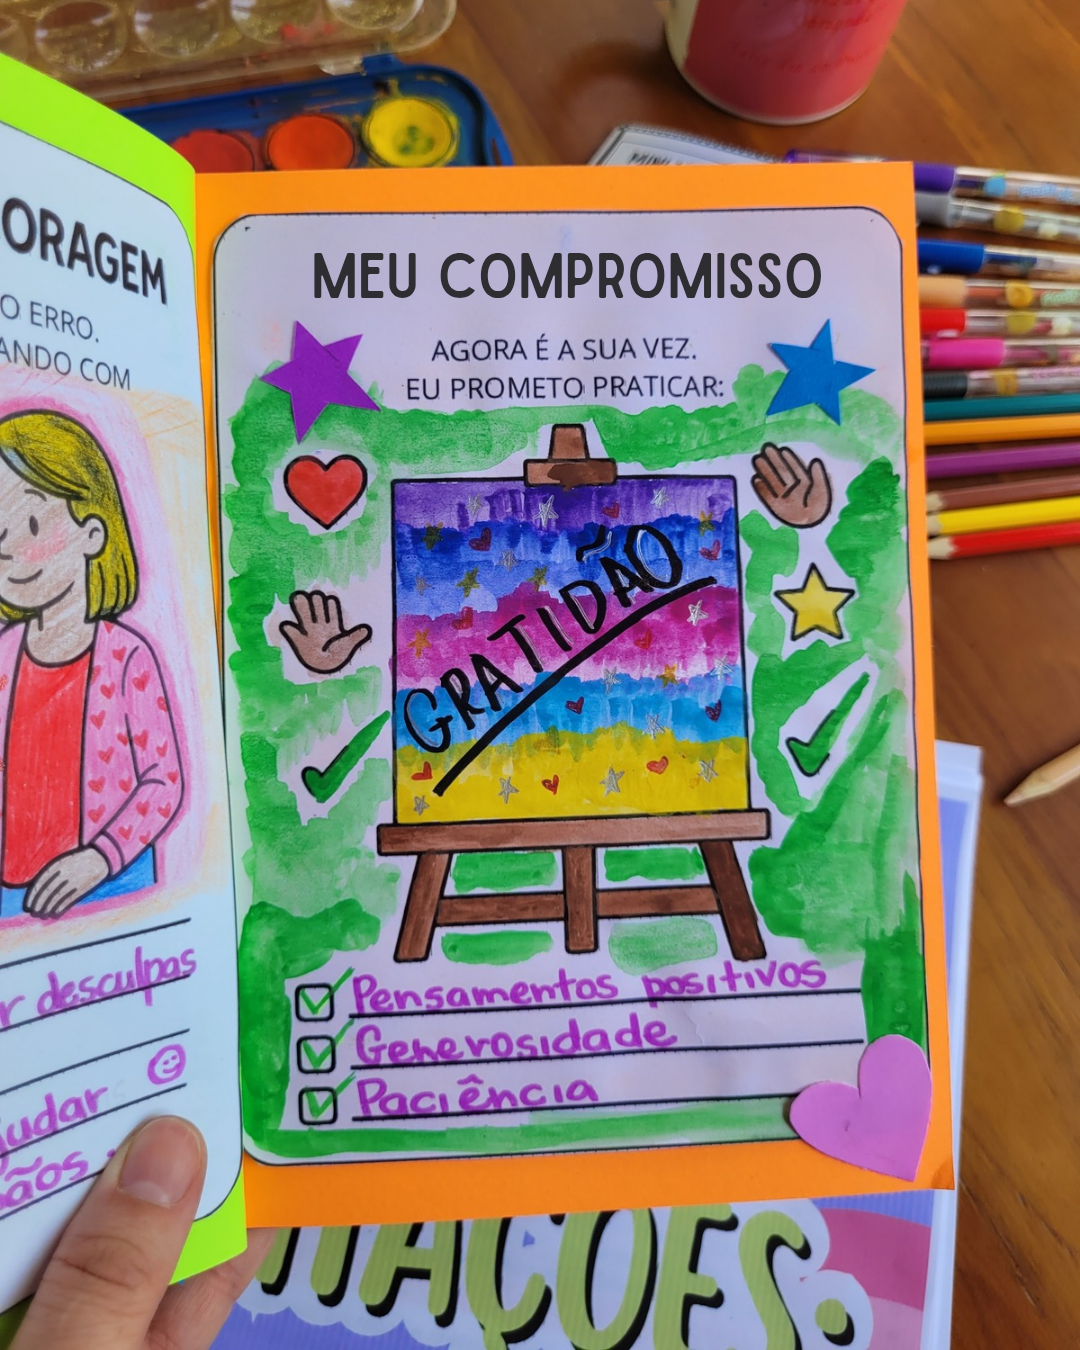 O ERRO.
COM
desculpas
MEU COMPROMISSO
AGORA É A SUA VEZ.
EU PROMETO PRATICAR:
GRATIDÃO
Pensamentos positivos
Generosidade
Paciência